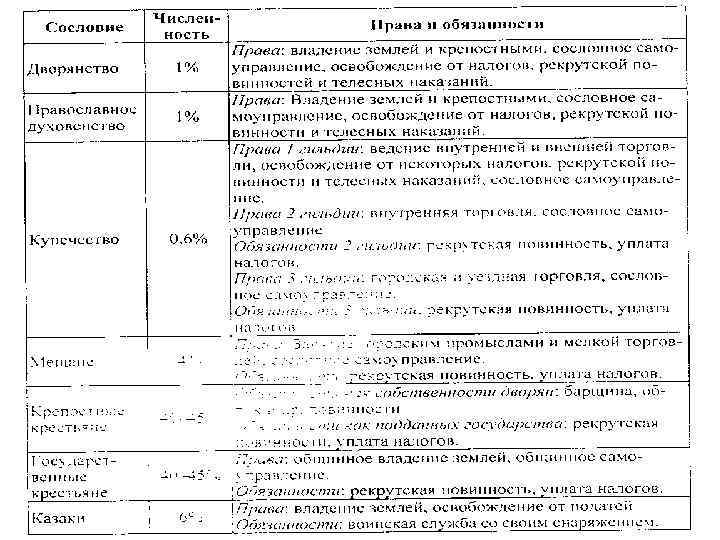 Сословие Числен- Права и обязанности
ность
Права: владение землей и крепостными, сословное само-
Дворянство 1% управление, освобождение от налогов, рекрутской по-
винностей и телесных наказаний.
Православное Права: Владение землей и крепостными, сословное са-
духовенство 1% моуправление, освобождение от налогов, рекрутской по-
винности и телесных наказаний.
Права 1 гильдии: ведение внутренней и внешней торгов-
ли, освобождение от некоторых налогов, рекрутской по-
винности и телесных наказаний, сословное самоуправле-
ние.
Права 2 гильдии: внутренняя торговля, сословное само-
управление
Купечество 0,6% Обязанности 2 гильдии: рекрутская повинность, уплата
налогов.
Права 3 гильдии: городская и уездная торговля, сослов-
ное самоуправление.
Обязанности 3 гильдии: рекрутская повинность, уплата
налогов
городским промыслами и мелкой торгов-
Мещане самоуправление.
рекрутская повинность, уплата налогов.
собственности дворян: барщина, об-
Крепостные повинности
крестьяне как подданных государства: рекрутская
повинности, уплата налогов.
Государст- Права: общинное владение землей, общинное само-
венные управление.
крестьяне Обязанности: рекрутская повинность, уплата налогов.
Казаки 6% Права: владение землей, освобождение от податей
Обязанности: воинская служба со своим снаряжением.